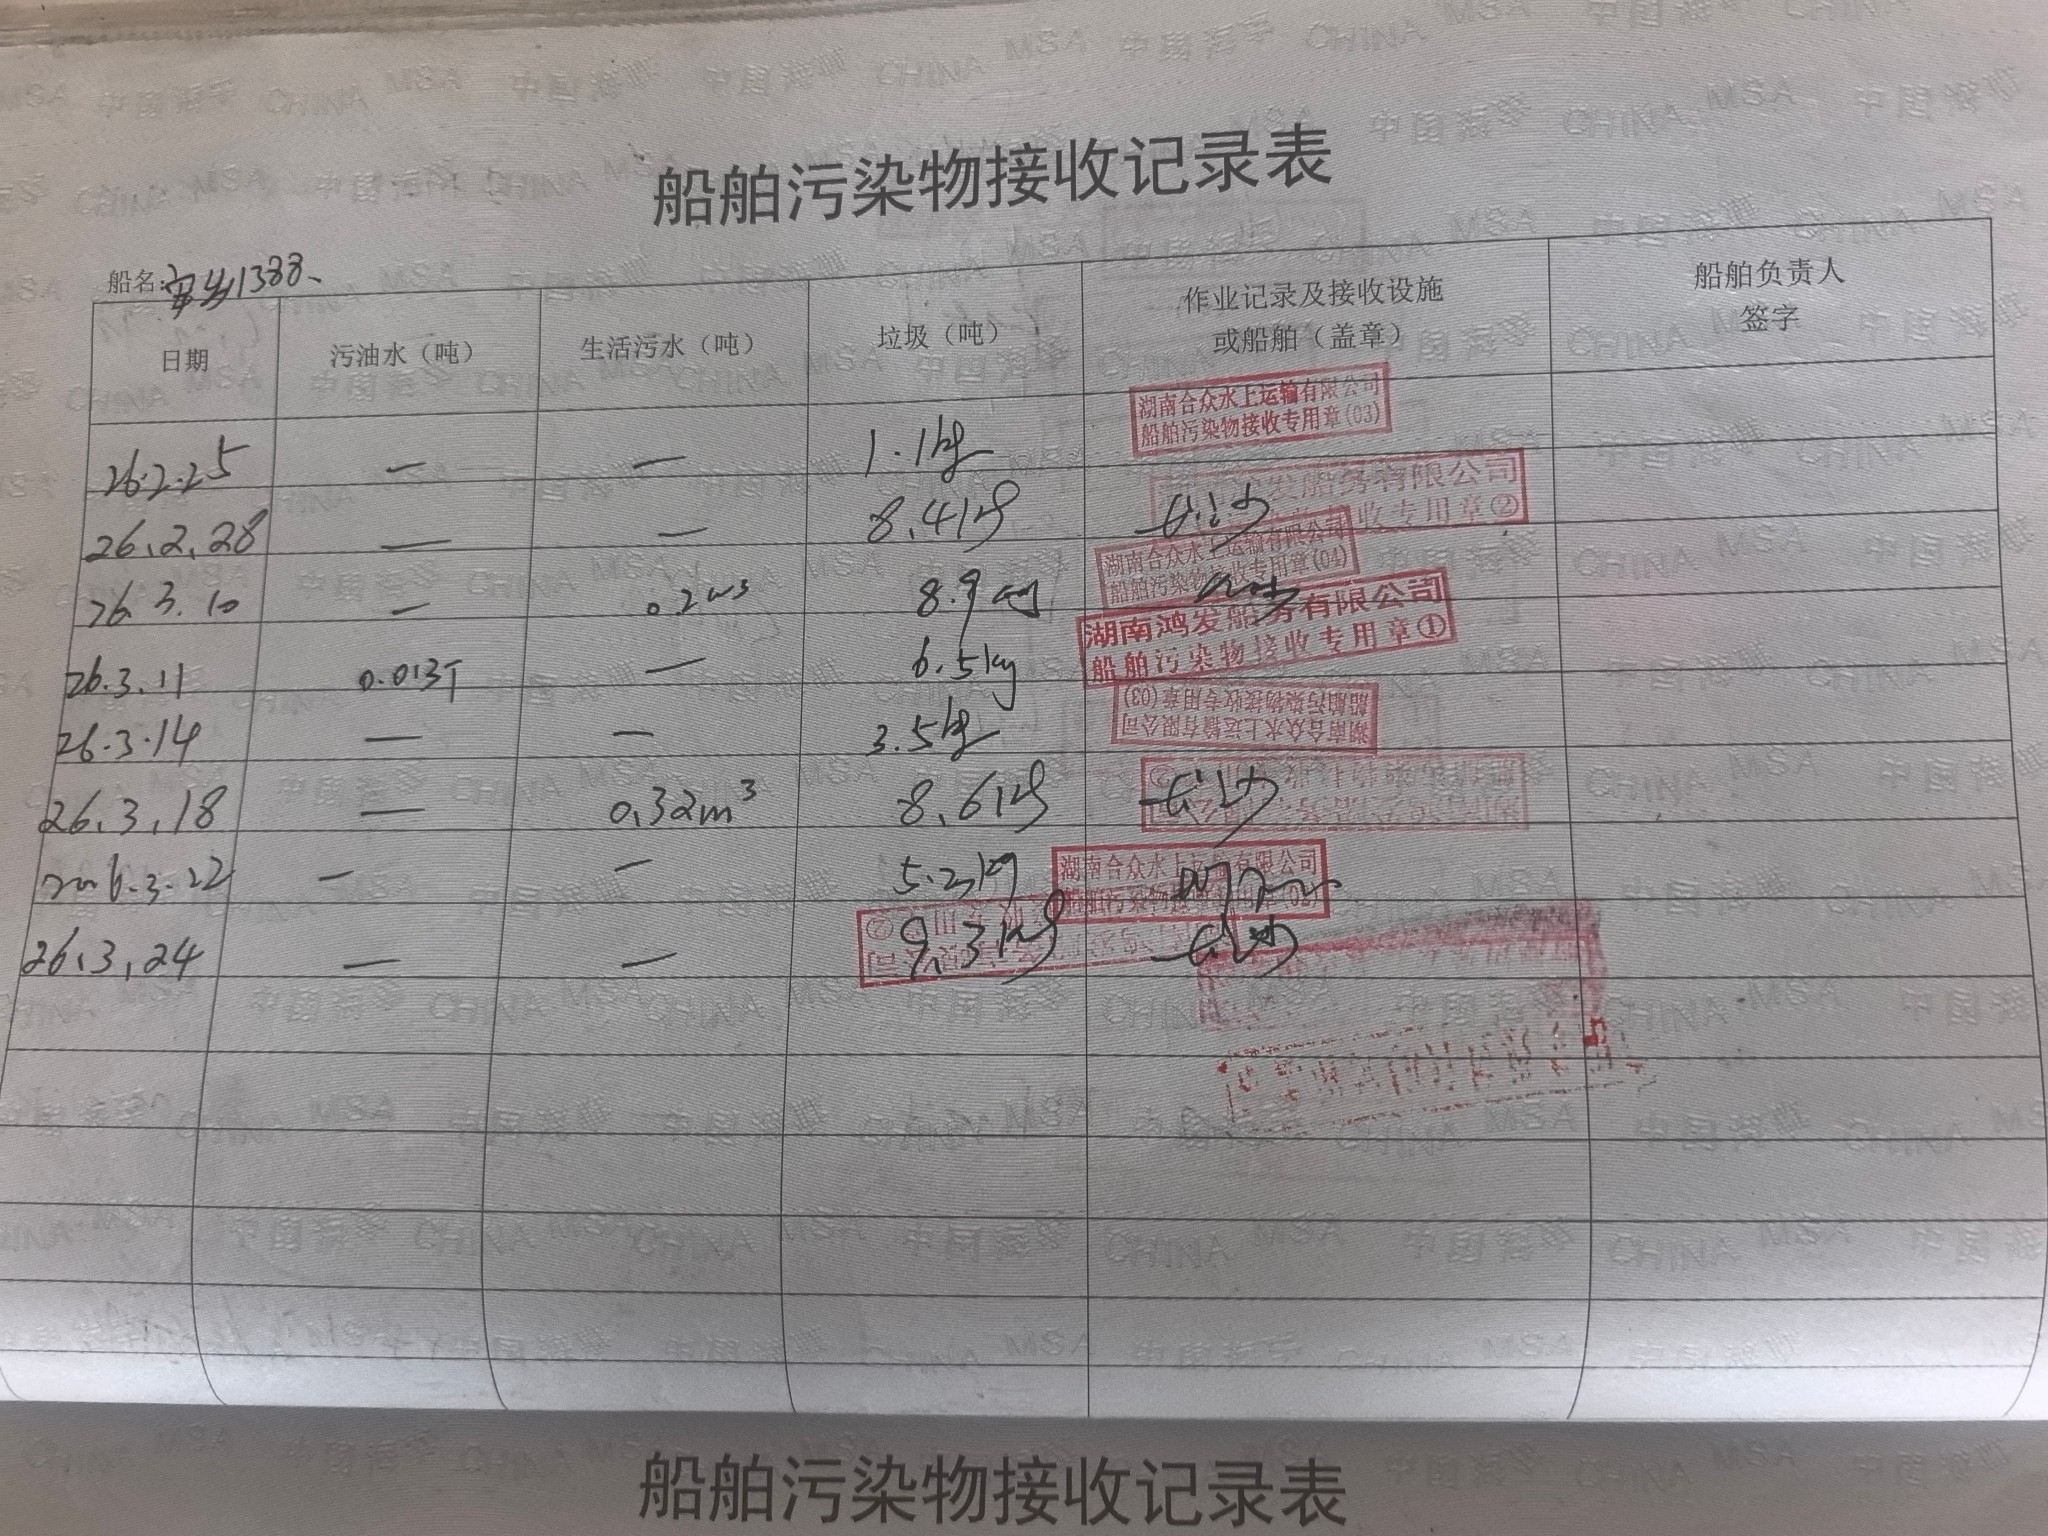 船舶污染物接收记录表
船名: 1388
日期 污油水（吨） 生活污水（吨） 垃圾（吨） 作业记录及接收设施或船舶（盖章） 船舶负责人签字
湖南合众水上运输有限公司
船舶污染物接收专用章(03)
26.2.25 — — 1.1kg
发船务有限公司
收专用章②
26.2.28 — — 8.4kg
湖南合众水上运输有限公司
船舶污染物接收专用章(04)
26.3.10 — 0.2m3 8.9kg
湖南鸿发船务有限公司
船舶污染物接收专用章①
26.3.11 0.013T — 6.5kg
26.3.14 — — 3.5kg
湖南合众水上运输有限公司
船舶污染物接收专用章(03)
26.3.18 — 0.32m³ 8.6kg
湖南合众水上运输有限公司
船舶污染物接收专用章(02)
2026.3.22 — — 5.2kg
26.3.24 — — 9.3kg
船舶污染物接收记录表